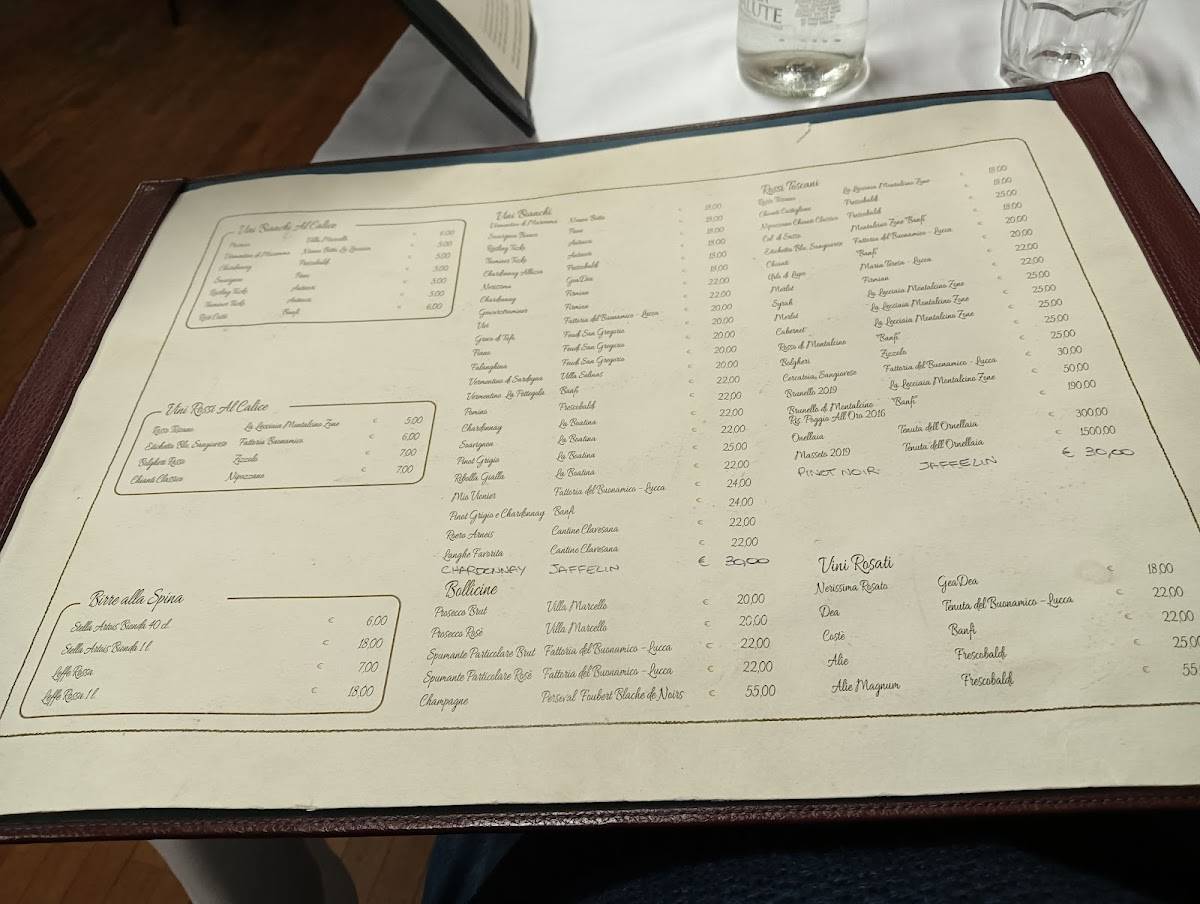 LUTE
Vini Bianchi Al Calice
Prosecco Villa Marcello € 6,00
Vermentino di Maremma Nanna Bitta La Lecciaia € 5,00
Chardonnay Frescobaldi € 5,00
Sauvignon Pane € 5,00
Riesling Ticks Anteus € 5,00
Traminer Ticks Anteus € 5,00
Rosè Costè Banfi € 6,00
Vini Rossi Al Calice
Rosso Toscano La Lecciaia Montalcino Zone € 5,00
Etichetta Blu, Sangiovese Fattoria Buonamico € 6,00
Bolgheri Rosso Zizzolo € 7,00
Chianti Classico Nipozzano € 7,00
Birre alla Spina
Stella Artois Bionda 40 cl. € 6,00
Stella Artois Bionda 1 l. € 18,00
Leffe Rossa € 7,00
Leffe Rossa 1 l. € 18,00
Vini Bianchi
Vermentino di Maremma Nanna Bitta € 18,00
Sauvignon € 18,00
Riesling Ticks € 18,00
Traminer Ticks € 18,00
Chardonnay Frescobaldi € 18,00
Nerissima GeaDea € 18,00
Chardonnay Firmian € 22,00
Gewurztraminer Firmian € 22,00
Fattoria del Buonamico - Lucca € 20,00
Greco di Tufo Feudi San Gregorio € 20,00
Fiano Feudi San Gregorio € 20,00
Falanghina Feudi San Gregorio € 20,00
Vermentino di Sardegna Villa Solinas € 20,00
Vermentino La Pettegola Banfi € 22,00
Pomino Frescobaldi € 22,00
Chardonnay La Boatina € 22,00
Sauvignon La Boatina € 22,00
Pinot Grigio La Boatina € 25,00
Ribolla Gialla La Boatina € 22,00
Mio Vionier Fattoria del Buonamico - Lucca € 24,00
Pinot Grigio e Chardonnay Banfi € 24,00
Roero Arneis Cantine Clavesana € 22,00
Langhe Favorita Cantine Clavesana € 22,00
CHARDONNAY JAFFELIN € 30,00
Bollicine
Prosecco Brut Villa Marcello € 20,00
Prosecco Rosè Villa Marcello € 20,00
Spumante Particolare Brut Fattoria del Buonamico - Lucca € 22,00
Spumante Particolare Rosè Fattoria del Buonamico - Lucca € 22,00
Champagne Perseval Foubert Blache de Noirs € 55,00
Rossi Toscani
Rosso Toscano La Lecciaia Montalcino Zone € 18,00
Chianti Castiglioni Frescobaldi € 18,00
Nipozzano Chianti Classico Frescobaldi € 25,00
Col di Sasso Montalcino "Banfi" € 18,00
Etichetta Blu, Sangiovese Fattoria del Buonamico - Lucca € 20,00
Chianti "Banfi" € 20,00
Maria Teresa - Lucca € 22,00
Merlot Firmian € 22,00
Syrah La Lecciaia Montalcino Zone € 25,00
Merlot La Lecciaia Montalcino Zone € 25,00
Cabernet La Lecciaia Montalcino Zone € 25,00
Rosso di Montalcino "Banfi" € 25,00
Bolgheri Zizzolo € 25,00
Cercatoia, Sangiovese Fattoria del Buonamico - Lucca € 30,00
Brunello 2019 La Lecciaia Montalcino Zone € 50,00
Brunello di Montalcino "Banfi" € 190,00
Ris. Poggio All'Oro 2016
Ornellaia Tenuta dell'Ornellaia € 300,00
Masseto 2019 Tenuta dell'Ornellaia € 1500,00
PINOT NOIR JAFFELIN € 30,00
Vini Rosati
Nerissima Rosato GeaDea € 18,00
Dea Tenuta del Buonamico - Lucca € 22,00
Costè Banfi € 22,00
Alie Frescobaldi € 25,00
Alie Magnum Frescobaldi € 55